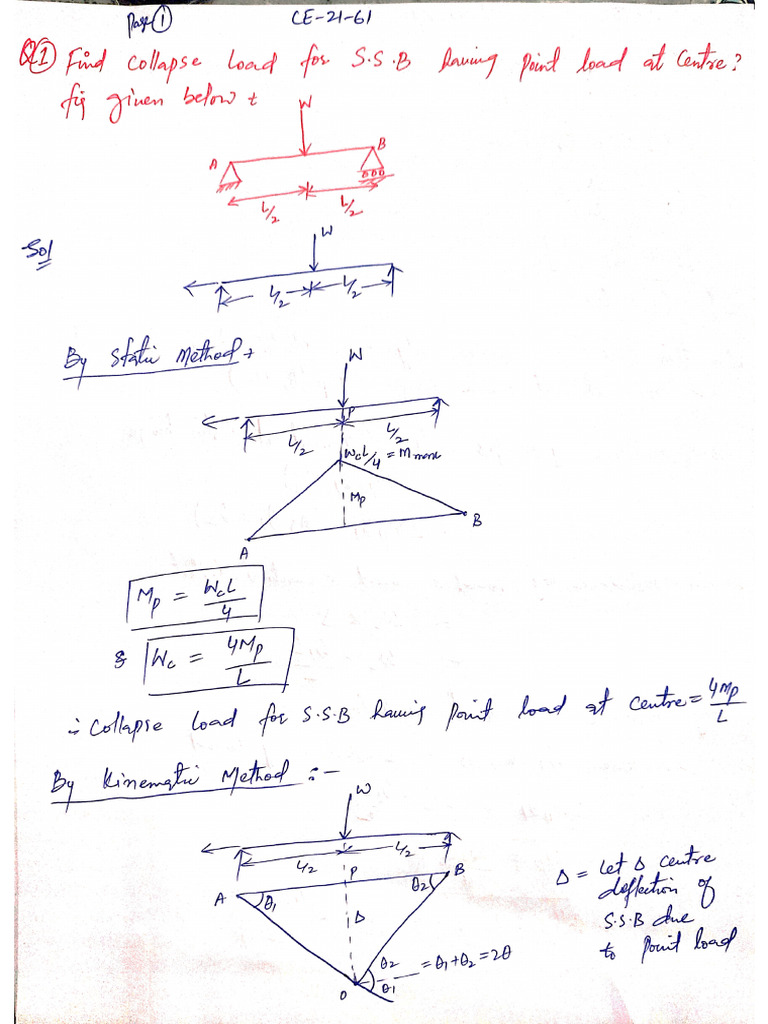 Page ① CE-21-61
Q① Find collapse load for S.S.B having point load at centre?
fig given below :-
W
A B
L/2 L/2
Sol
W
L/2 L/2
By Static Method :-
W
P
L/2 L/2
WcL/4 = Mmax
Mp
A B
Mp = WcL/4
& Wc = 4Mp/L
∴ Collapse load for S.S.B having point load at centre = 4Mp/L
By Kinematic Method :-
W
L/2 L/2
A P B
θ1 θ2
Δ
θ2 = θ1+θ2 = 2θ
θ1
O
Δ = Let Δ centre
deflection of
S.S.B due
to point load